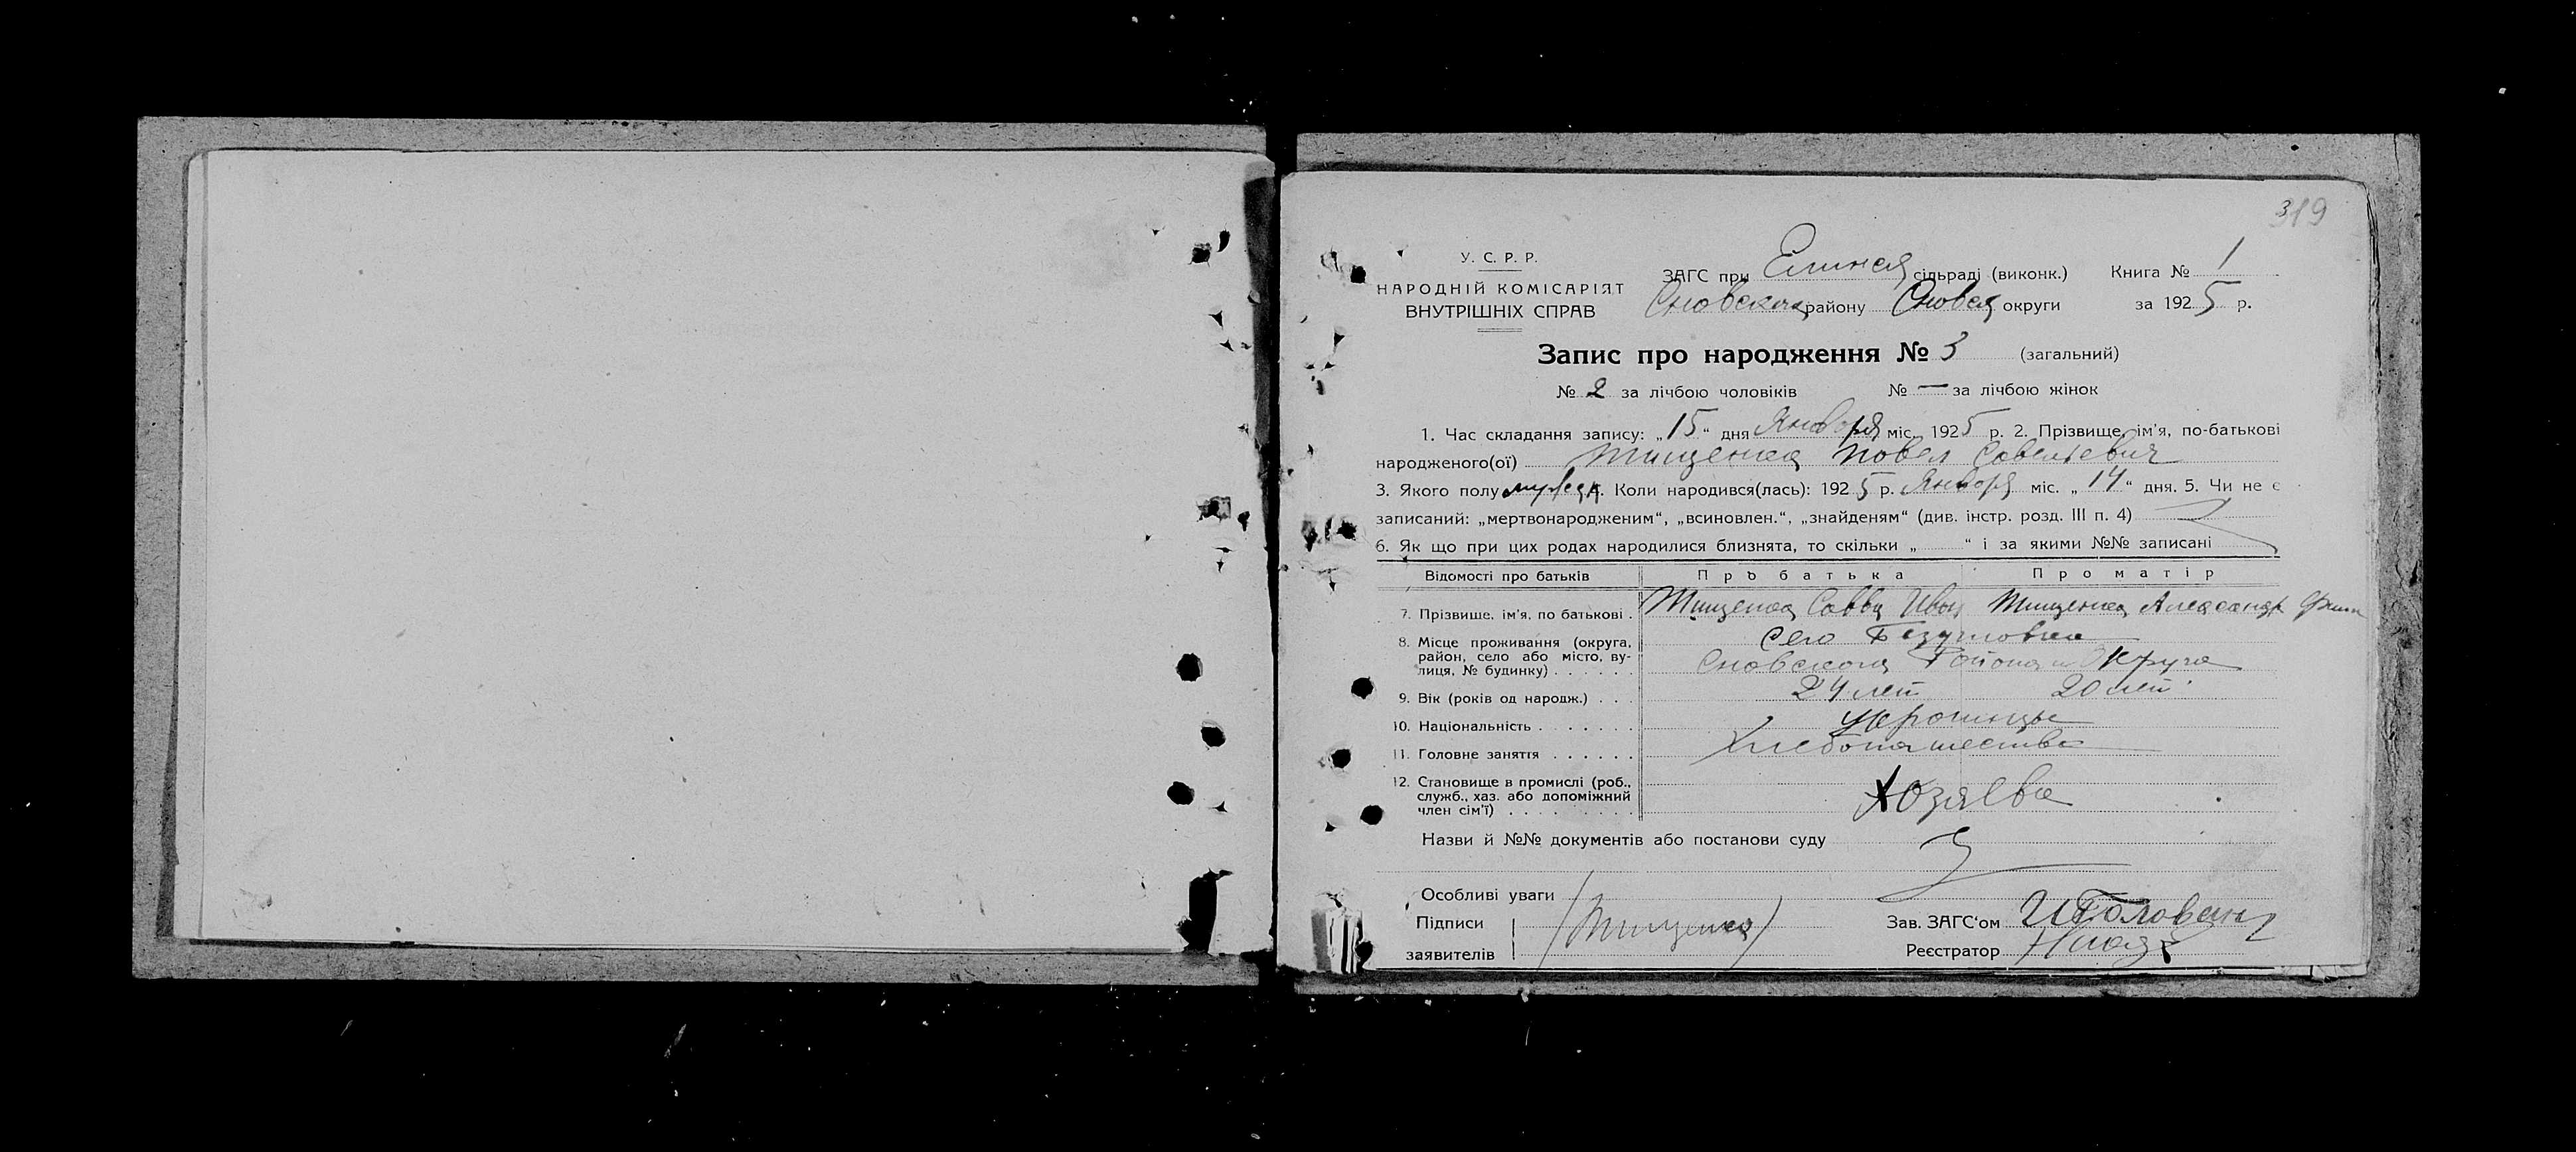 319
У. С. Р. Р.
НАРОДНІЙ КОМІСАРІЯТ
ВНУТРІШНІХ СПРАВ
ЗАГС при Елинск сільраді (виконк.) Книга № 1
Сновском району Сновск округи за 1925 р.
Запис про народження № 3 (загальний)
№ 2 за лічбою чоловіків № — за лічбою жінок
1. Час складання запису: „15“ дня Января міс. 1925 р. 2. Прізвище, ім'я, по-батькові
народженого(ої) Тищенко Повел Совельевич
3. Якого полу мужск 4. Коли народився(лась): 1925 р. Января міс. „14“ дня. 5. Чи не є
записаний: „мертвонародженим“, „всиновлен.“, „знайденям“ (див. інстр. розд. III п. 4)
6. Як що при цих родах народилися близнята, то скільки „ “ і за якими №№ записані
Відомості про батьків Про батька Про матір
7. Прізвище, ім'я, по батькові . Тищенко Савва Иван Тищенко Александр
8. Місце проживання (округа, район, село або місто, вулиця, № будинку) . . . . . . село Безугловка
Сновского Района и Округа
9. Вік (років од народж.) . . . 24 лет 20 лет
10. Національність . . . . . . . украинцы
11. Головне заняття . . . . . . Хлебопашество
12. Становище в промислі (роб., служб., хаз. або допоміжний член сім'ї) . . . . . . . . . Хозяева
Назви й №№ документів або постанови суду
Особливі уваги
Підписи заявителів (Тищенко)
Зав. ЗАГС'ом
Реєстратор